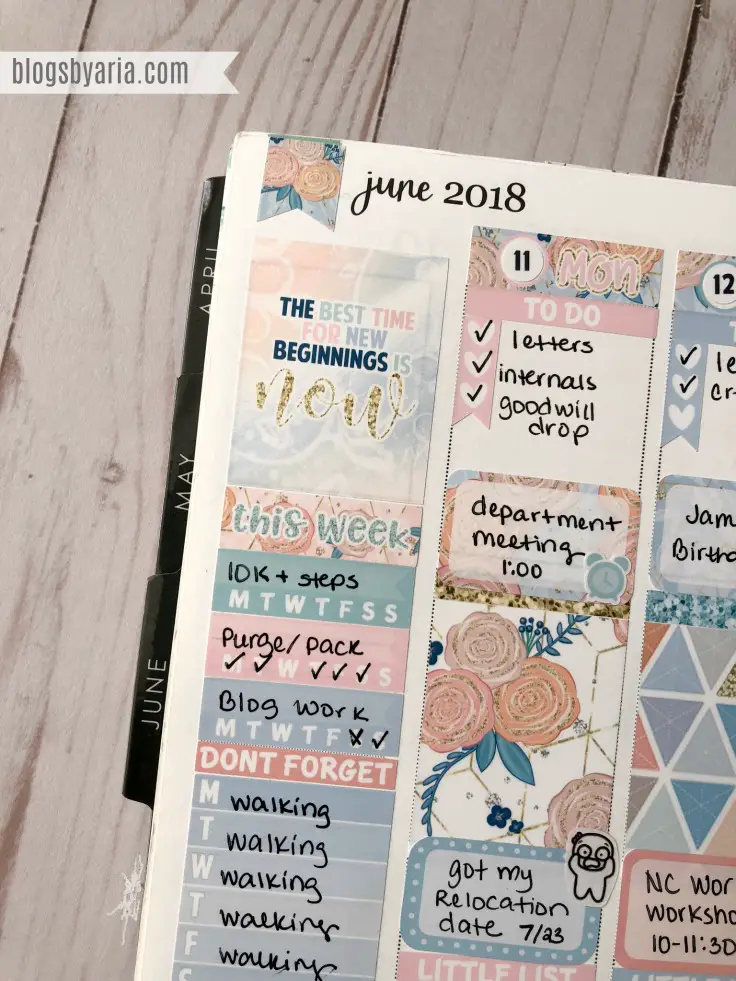 blogsbyaria.com
june 2018
APRIL
MAY
JUNE
THE BEST TIME
FOR NEW
BEGINNINGS IS
now
this week
10K + steps
M T W T F S S
Purge/pack
W S
Blog work
M T W T F
DONT FORGET
M walking
T walking
W walking
T walking
F walking
S
11 MON
TO DO
letters
internals
goodwill
drop
department
meeting
1:00
got my
Relocation
date 7/23
LITTLE LIST
12
Jam
Birth
NC Wor
Worksho
10-11:30